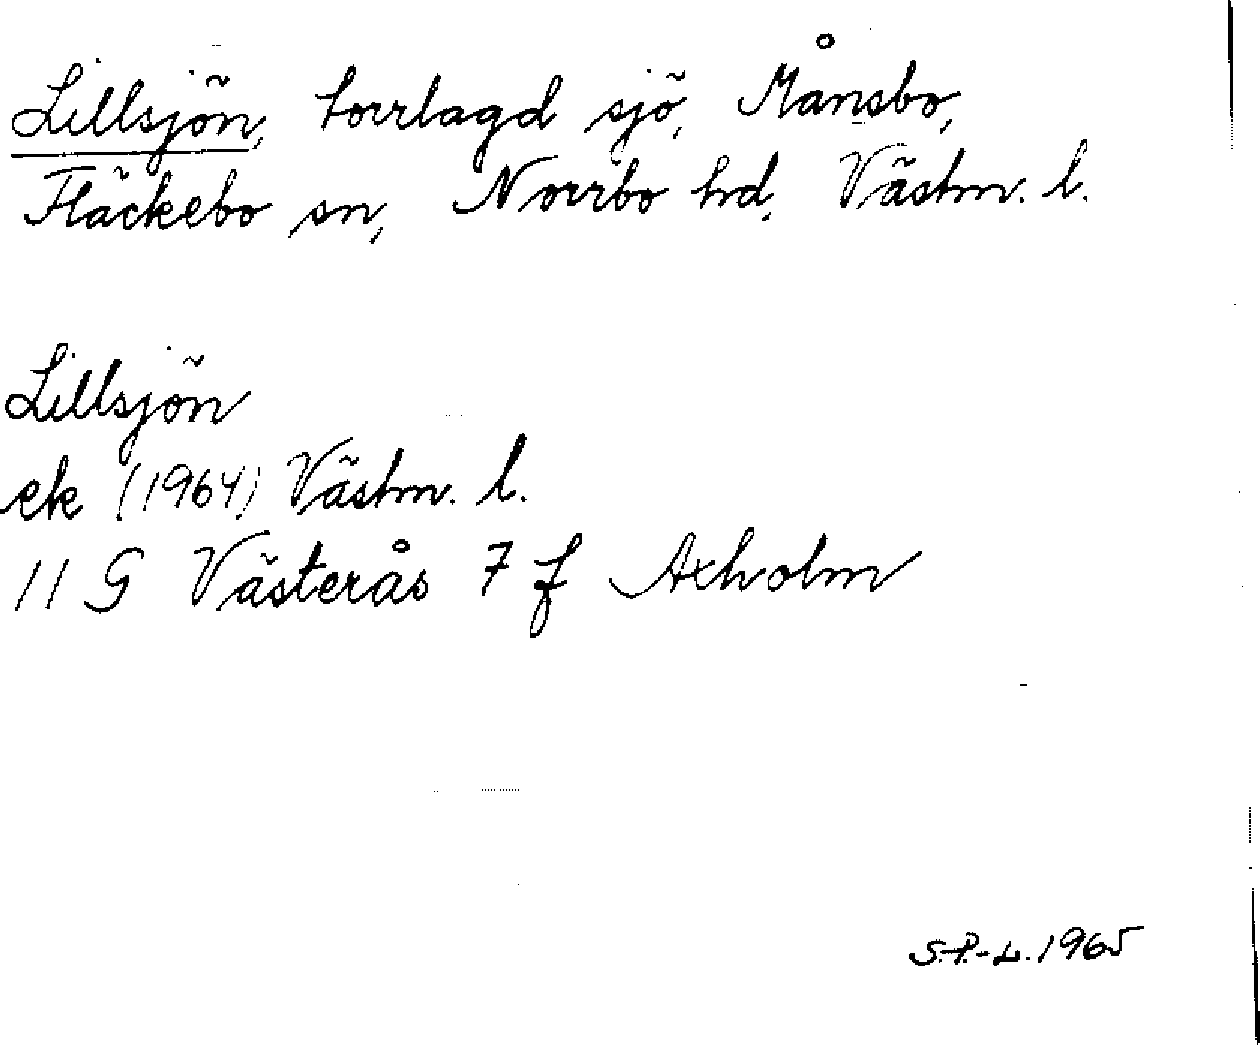 Lillsjön, torrlagd sjö, Månsbo,
Fläckebo sn, Norrbo hd, Västm. l.
Lillsjön
ek (1964) Västm. l.
11 G Västerås 7 f Axholm
S.P.-L. 1965